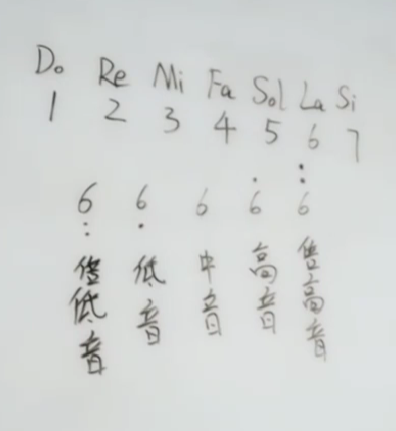 Do Re Mi Fa Sol La Si
1 2 3 4 5 6 7
6̤ 6̣ 6 6̇ 6̈
倍低音 低音 中音 高音 倍高音